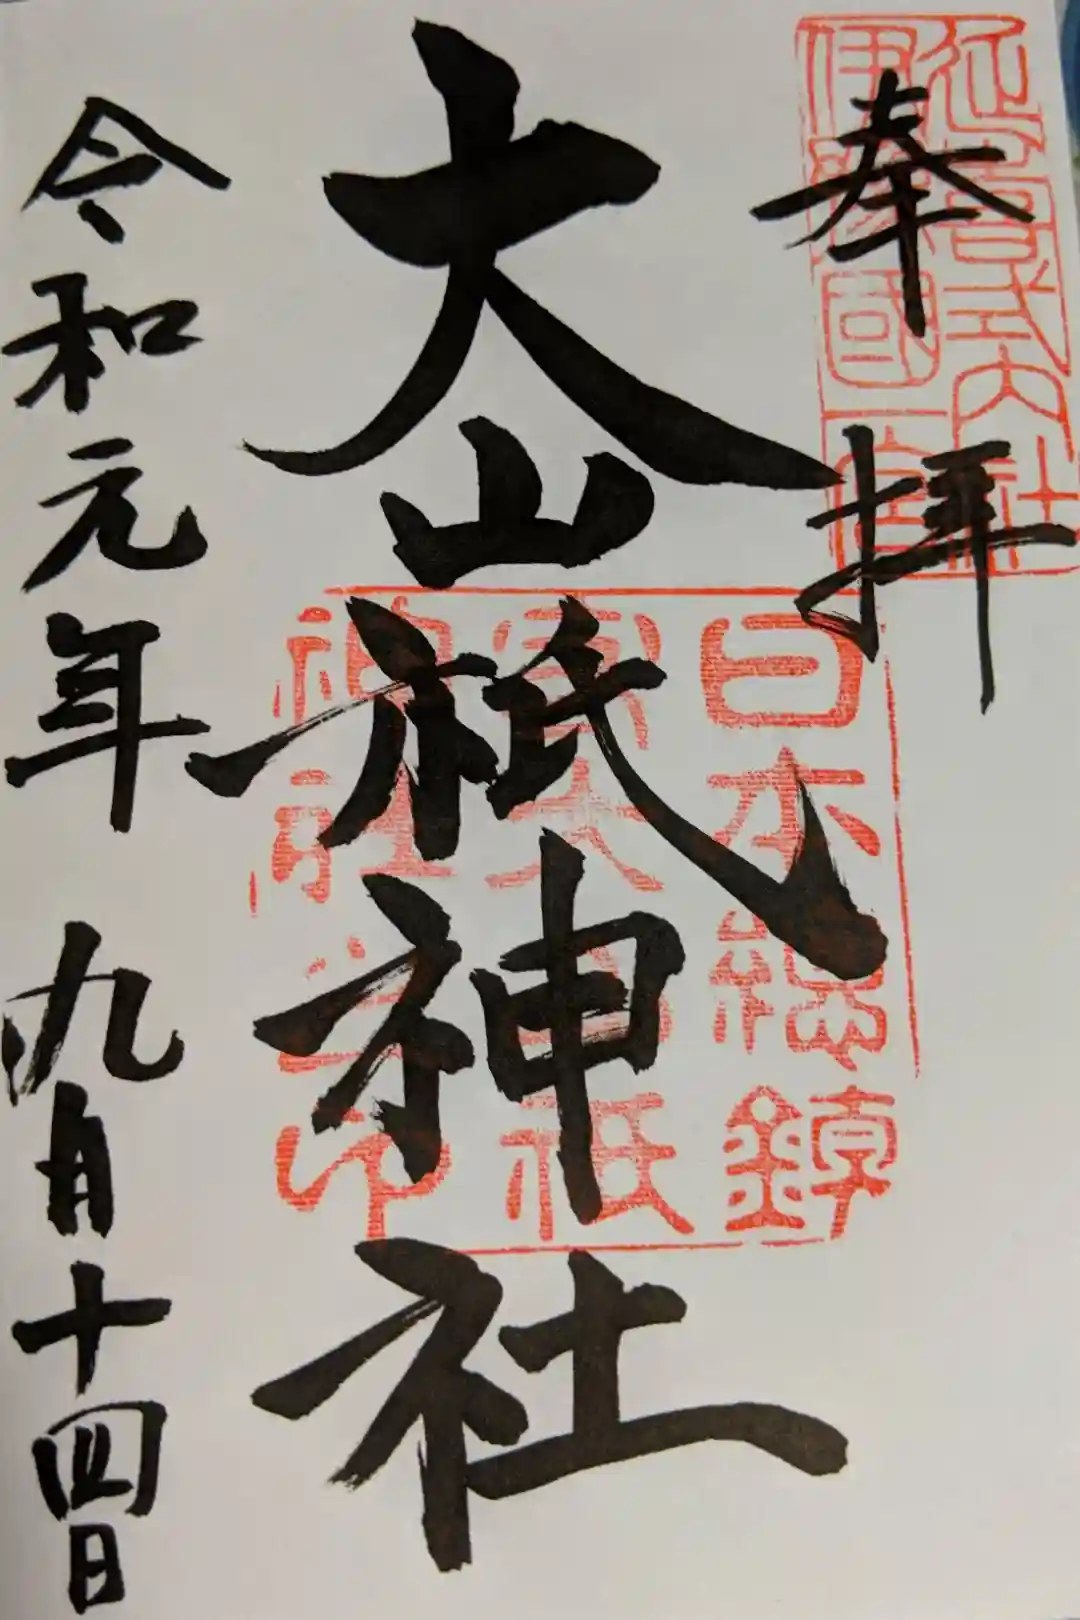 奉拝
延喜式内社
伊豫國一宮
大山祇神社
日本総鎮
守大山祇
神社之印
令和元年 九月十四日